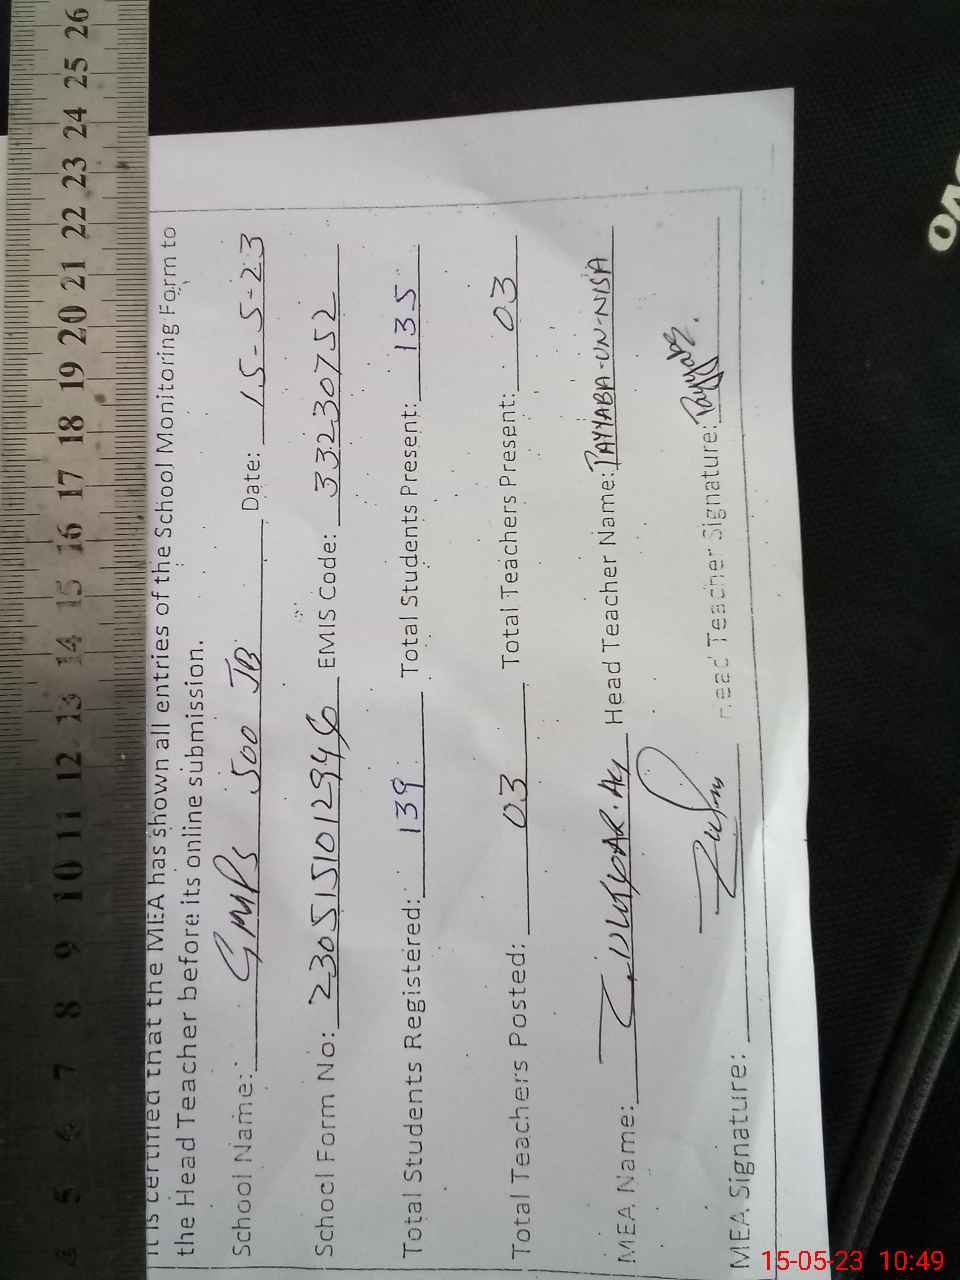 It is certified that the MEA has shown all entries of the School Monitoring Form to
the Head Teacher before its online submission.
School Name: GMPS 500 JB Date: 15-5-23
School Form No: 2305151012946 EMIS Code: 33230752
Total Students Registered: 139 Total Students Present: 135
Total Teachers Posted: 03 Total Teachers Present: 03
MEA Name: Head Teacher Name: TAYYABA-UN-NISA
MEA Signature: Head Teacher Signature: Tayyaba.
4 5 6 7 8 9 10 11 12 13 14 15 16 17 18 19 20 21 22 23 24 25 26
15-05-23 10:49